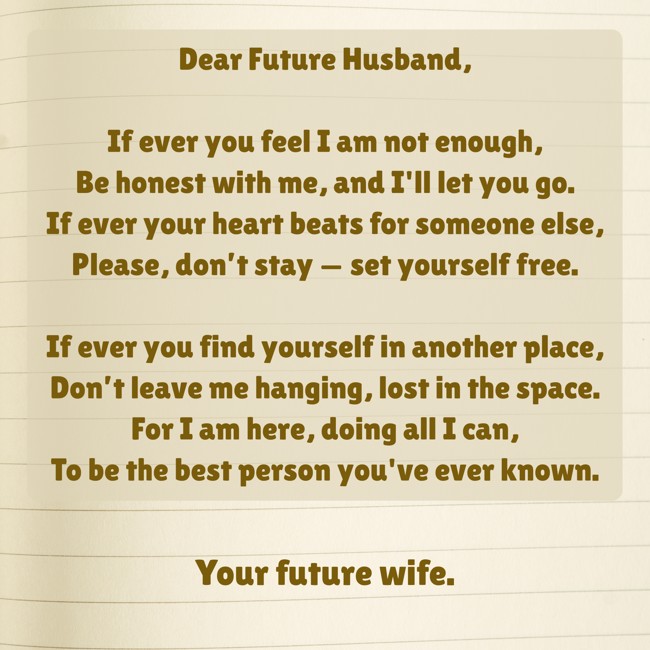 Dear Future Husband,
If ever you feel I am not enough,
Be honest with me, and I'll let you go.
If ever your heart beats for someone else,
Please, don't stay – set yourself free.
If ever you find yourself in another place,
Don't leave me hanging, lost in the space.
For I am here, doing all I can,
To be the best person you've ever known.
Your future wife.